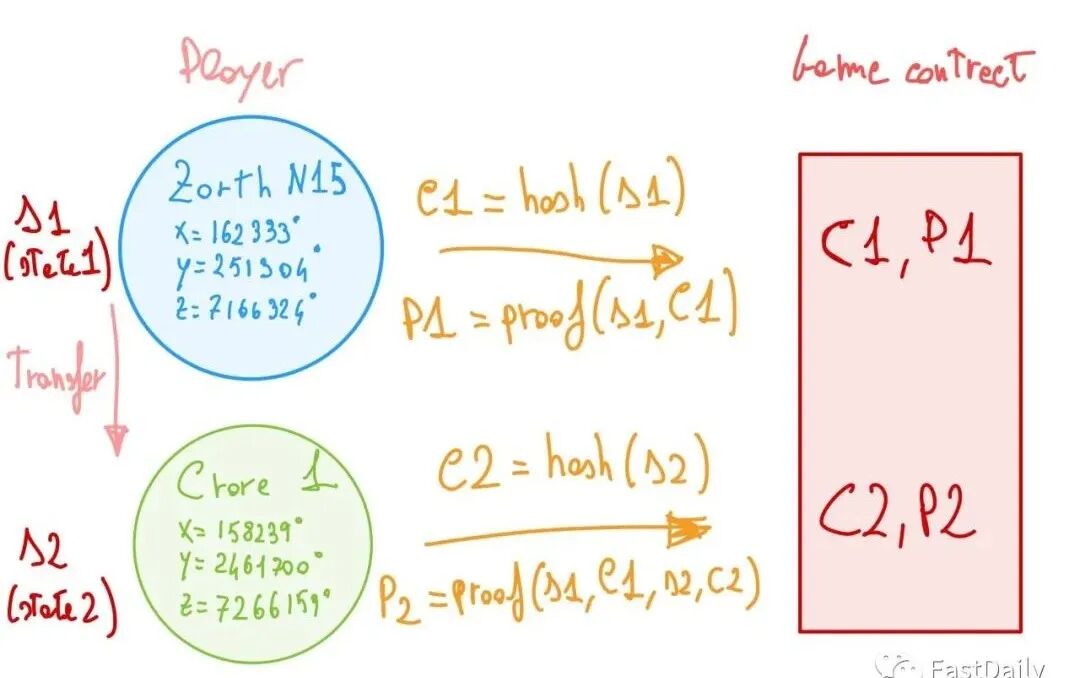 Player
Game contract
Zorth N15
X=162333°
Y=251304°
Z=7166324°
S1
(state1)
C1 = hash(S1)
P1 = proof(S1,C1)
C1, P1
Transfer
Crore 1
X=158239°
Y=2461700°
Z=7266159°
S2
(state2)
C2 = hash(S2)
P2 = proof(S1,C1,S2,C2)
C2, P2
FastDaily